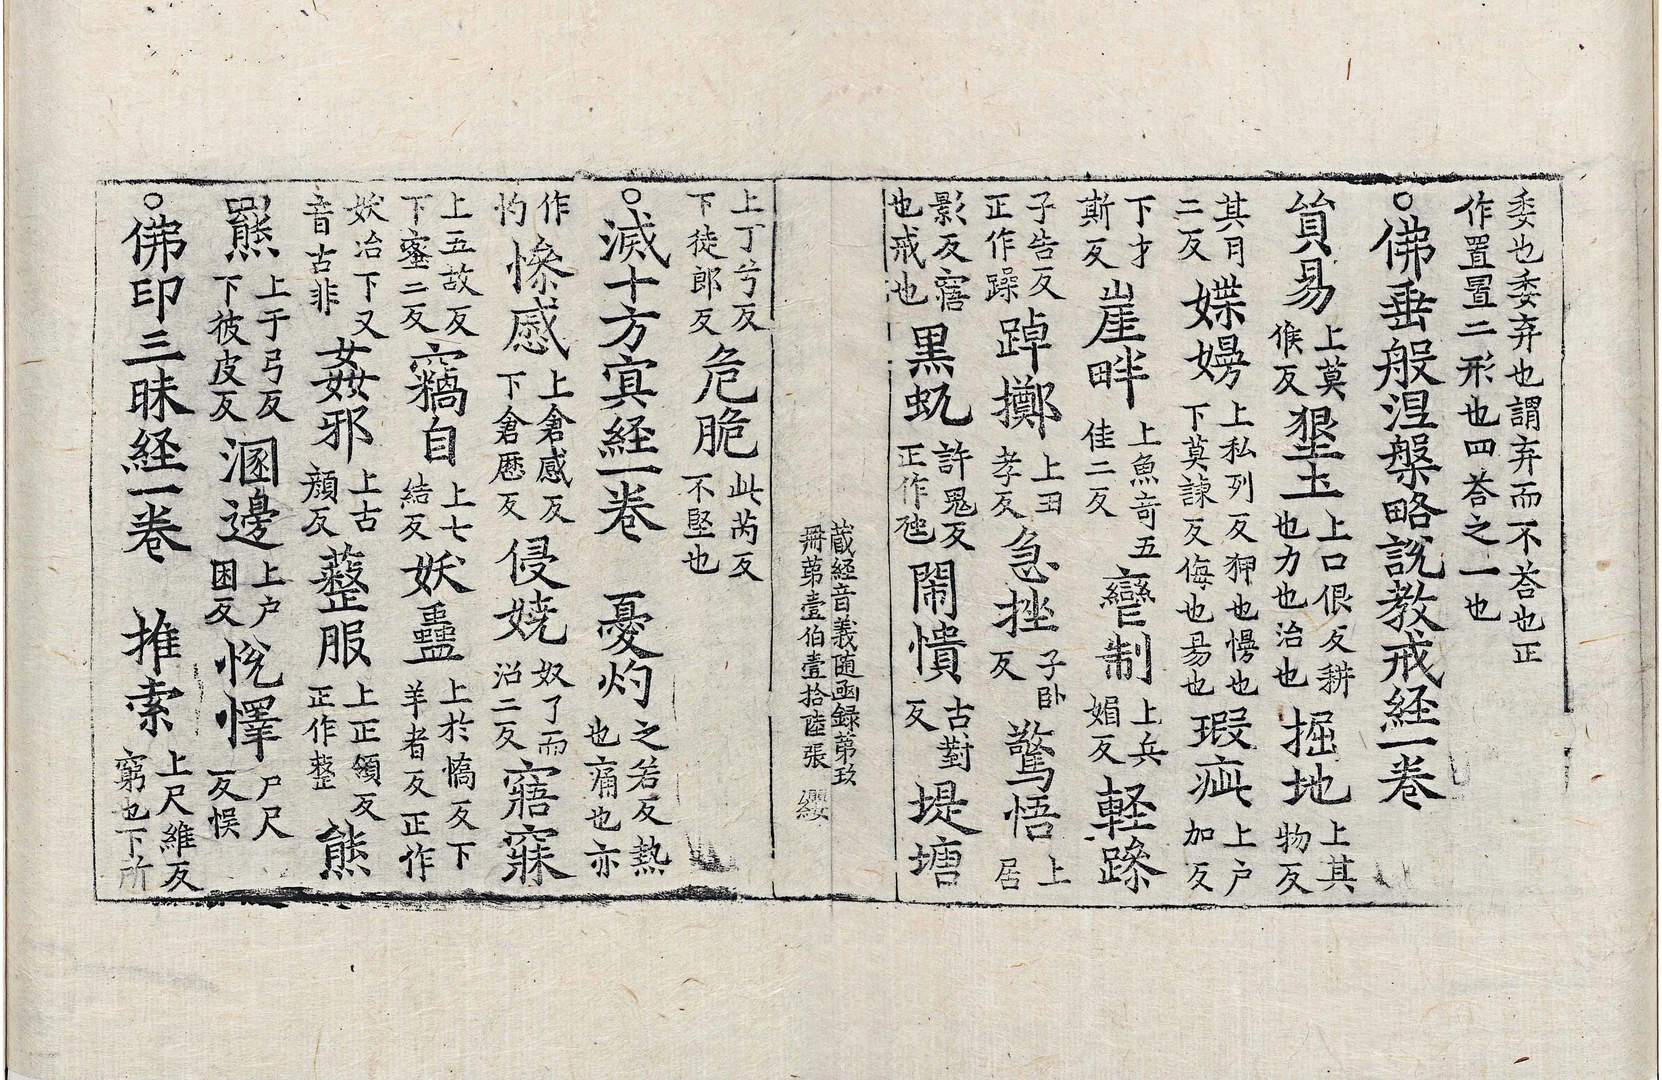 委也委弃也謂弃而不荅也正
作置置二形也四荅之一也
○佛垂般涅槃略說教戒経一卷
貿易上莫候反墾土上口佷反耕也力也治也掘地上其物反
其月二反媟嫚上私列反狎也慢也下莫諫反侮也易也瑕疵上户加反
下才斯反崖畔上魚奇五佳二反彎制上兵媚反軽躁
子告反正作躁踔擲上丑孝反急挫子卧反驚悟上居
影反寤也戒也黒虬許鬼反正作虺閙憒古對反堤塘
蔵経音義随函録苐玖
冊苐壹伯壹拾陸張 纓
上丁兮反下徒郎反危脆此芮反不堅也
○滅十方㝠経一卷 憂灼之若反熱也痛也亦
作㣿慘慼上倉感反下倉歷反侵嬈奴了而沼二反寤寐
上五故反下蜜二反竊自上七結反妖蠱上於憍反下羊者反正作
妖冶下又音古非姦邪上古顔反整服上正領反正作整熊
羆上于弓反下彼皮反溷邊上户困反悅懌尸尺反悮
○佛印三昧経一卷 推索上尺維反窮也下所